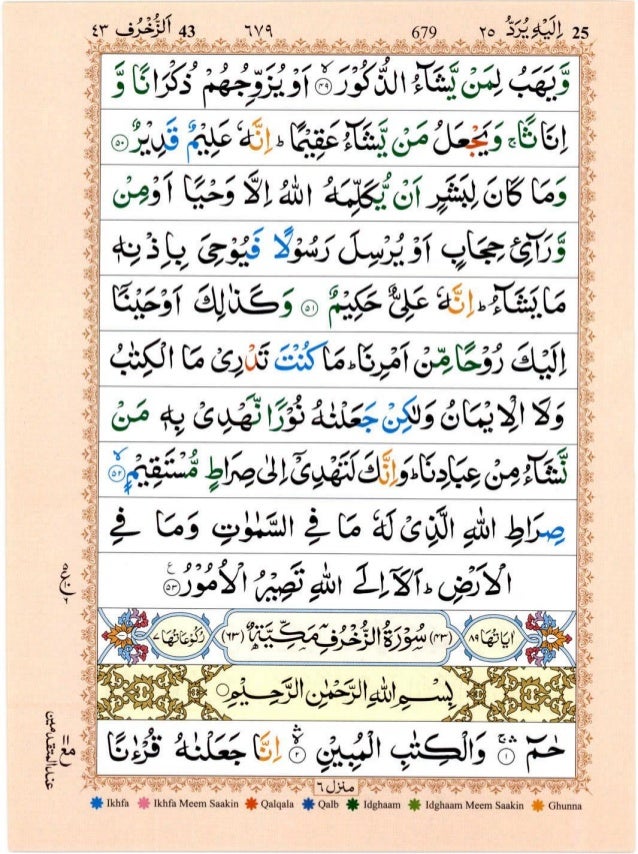 اَلزُّخْرُف ٤٣ 43 ٦٧٩ 679 اِلَيْهِ يُرَدُّ ٢٥ 25
وَّيَهَبُ لِمَنْ يَّشَآءُ الذُّكُوْرَ ۙ‏﴿٤٩﴾ اَوْ يُزَوِّجُهُمْ ذُكْرَانًا وَّ
اِنَاثًا ۚ وَيَجْعَلُ مَنْ يَّشَآءُ عَقِيْمًا ؕ اِنَّهٗ عَلِيْمٌ قَدِيْرٌ ﴿٥٠﴾
وَمَا كَانَ لِبَشَرٍ اَنْ يُّكَلِّمَهُ اللّٰهُ اِلَّا وَحْيًا اَوْ مِنْ
وَّرَآئِ حِجَابٍ اَوْ يُرْسِلَ رَسُوْلًا فَيُوْحِىَ بِاِذْنِهٖ
مَا يَشَآءُ ؕ اِنَّهٗ عَلِىٌّ حَكِيْمٌ ﴿٥١﴾ وَكَذٰلِكَ اَوْحَيْنَاۤ
اِلَيْكَ رُوْحًا مِّنْ اَمْرِنَا ؕ مَا كُنْتَ تَدْرِىْ مَا الْكِتٰبُ
وَلَا الْاِيْمَانُ وَلٰكِنْ جَعَلْنٰهُ نُوْرًا نَّهْدِىْ بِهٖ مَنْ
نَّشَآءُ مِنْ عِبَادِنَا ؕ وَاِنَّكَ لَتَهْدِىْۤ اِلٰى صِرَاطٍ مُّسْتَقِيْمٍ ۙ‏﴿٥٢﴾
صِرَاطِ اللّٰهِ الَّذِىْ لَهٗ مَا فِى السَّمٰوٰتِ وَمَا فِى
الْاَرْضِ ؕ اَلَاۤ اِلَى اللّٰهِ تَصِيْرُ الْاُمُوْرُ ﴿٥٣﴾ ع
اٰيَاتُهَا ٨٩ (٤٣) سُوْرَةُ الزُّخْرُفِ مَكِّيَّةٌ (٦٣) رُكُوْعَاتُهَا ٧
بِسْمِ اللّٰهِ الرَّحْمٰنِ الرَّحِيْمِ
حٰمٓ ۚ‏ۛ ﴿١﴾ وَالْكِتٰبِ الْمُبِيْنِ ۙ‏ۛ ﴿٢﴾ اِنَّا جَعَلْنٰهُ قُرْءٰنًا
منزل ٦
Ikhfa Ikhfa Meem Saakin Qalqala Qalb Idghaam Idghaam Meem Saakin Ghunna